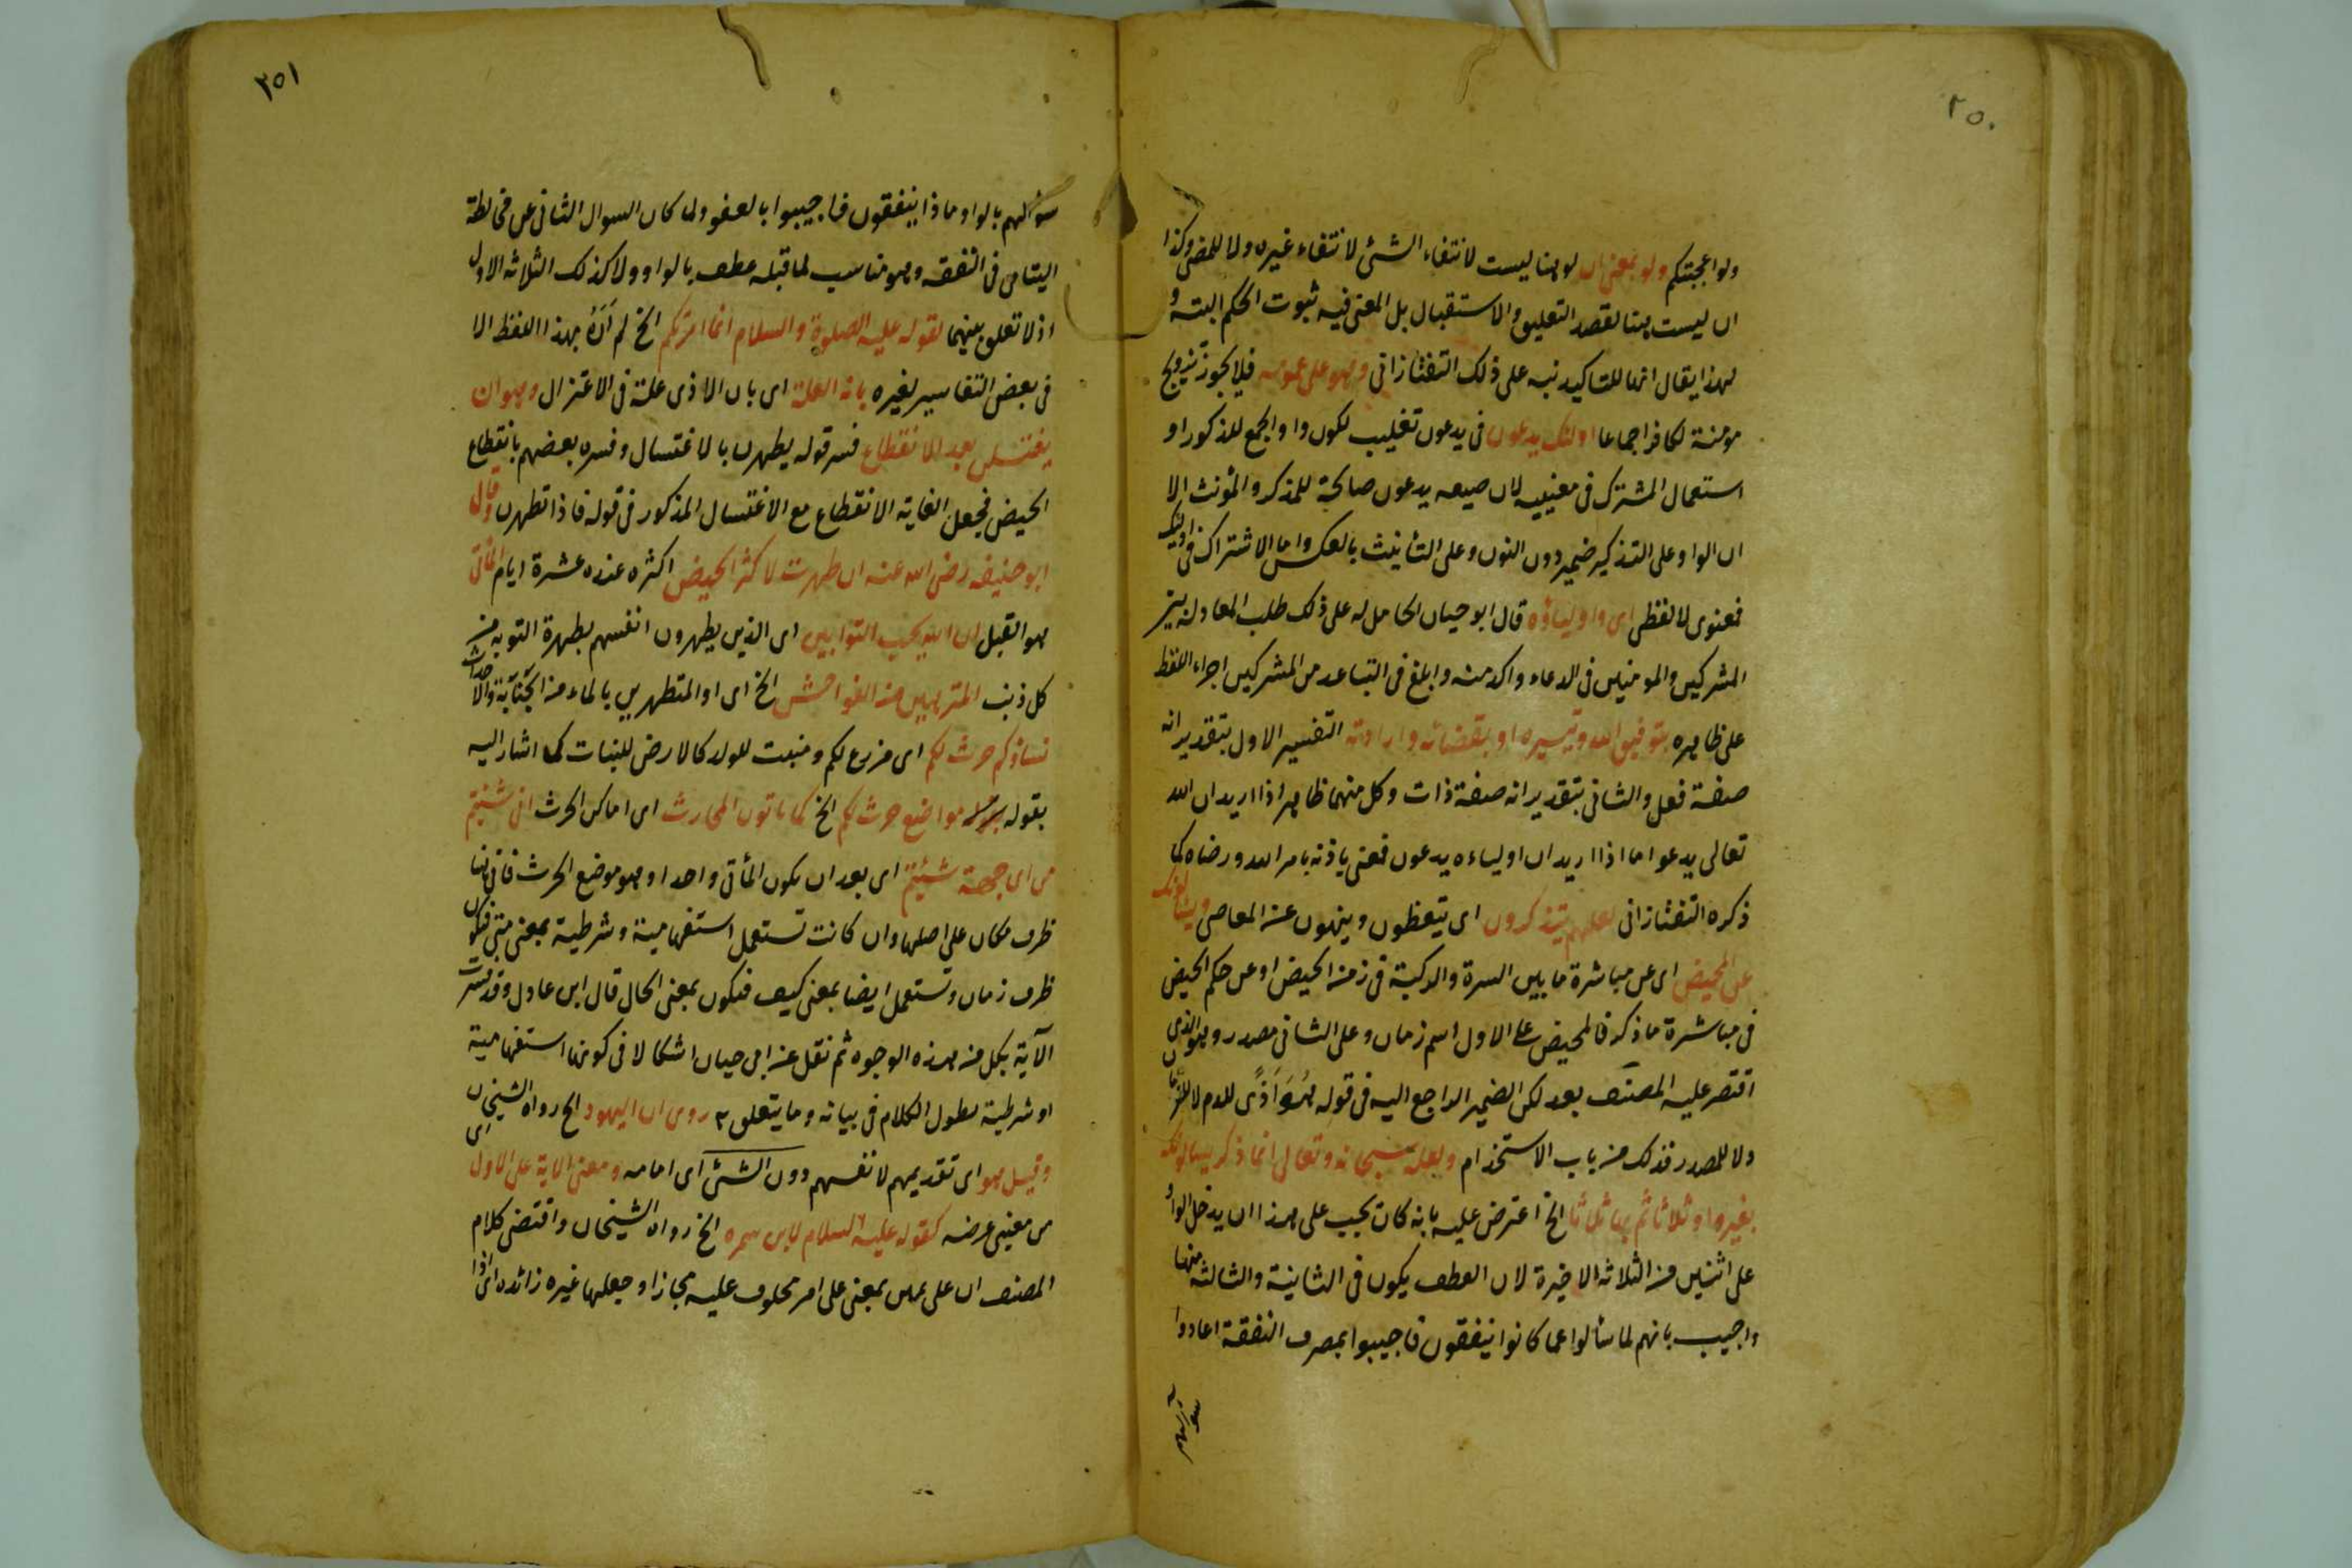 ٢٥٠
ولو اعجبتكم ولو بمعنى ان لو هنا ليست لانتفاء الشئ لانتفاء غيره ولا للمضى وكذا
ان ليست هنا لقصد التعليق والاستقبال بل المعنى فيه ثبوت الحكم البتة و
لهذا يقال انها للتاكيد نبه على ذلك التفتازانى وهو على عمومه فلا يجوز تزويج
مومنة لكافر اجماعا اولئك يدعون فى يدعون تغليب لكون واو الجمع للذكور او
استعمال المشترك فى معنييه لان صيغه يدعون صالحة للمذكر والمؤنث الا
ان الواو على التذكير ضمير دون النون وعلى التانيث بالعكس واما الاشتراك فى اولئك
فمعنوى لا لفظى اى واولياؤه قال ابو حيان الحامل له على ذلك طلب المعادلة بين
المشركين والمومنين فى الدعاء واكد منه وابلغ فى التباعد من المشركين اجراء اللفظ
على ظاهره بتوفيق الله وتيسيره او بقضائه وارادته التفسير الاول بتقدير انه
صفة فعل والثانى بتقدير انه صفة ذات وكل منهما ظاهر اذا اريد ان الله
تعالى يدعو اما اذا اريد ان اولياءه يدعون فمعنى باذنه بامر الله ورضاه كما
ذكره التفتازانى لعلهم يتذكرون اى يتعظون وينتهون عن المعاصى ويسئلونك
عن المحيض اى عن مباشرة ما بين السرة والركبة فى زمن الحيض او عن حكم الحيض
فى مباشرة ما ذكر فالمحيض على الاول اسم زمان وعلى الثانى مصدر وهو الذى
اقتصر عليه المصنف بعد لكن الضمير الراجع اليه فى قوله هُوَ اَذًى للدم لا للزمان
ولا للمصدر فذلك من باب الاستخدام ولعله سبحانه وتعالى انما ذكر يسالونك
بغير واو ثلاثا ثم بها ثلاثا الخ اعترض عليه بانه كان يجب على هذا ان يدخل الواو
على اثنين من الثلاثة الاخيرة لان العطف يكون فى الثانية والثالثة منها
واجيب بانهم لما سالوا عما كانوا ينفقون فاجيبوا بمصرف النفقة اعادوا
سؤالهم
٢٥١
سؤالهم بالواو ماذا ينفقون فاجيبوا بالعفو ولما كان السوال الثانى عن مخالطة
اليتامى فى النفقه وهو مناسب لما قبله عطف بالواو ولا كذلك الثلاثه الاول
اذ لا تعلق بينهما لقوله عليه الصلوة والسلام انما امرتكم الخ لم اَرَهُ بهذا اللفظ الا
فى بعض التفاسير لغيره بانه العلة اى بان الاذى علة فى الاعتزال وهو ان
يغتسلن بعد الانقطاع فسر قوله يطهرن بالاغتسال وفسره بعضهم بانقطاع
الحيض فجعل الغاية الانقطاع مع الاغتسال المذكور فى قوله فاذا تطهرن وقال
ابو حنيفه رضى الله عنه ان طهرت لاكثر الحيض اكثره عنده عشرة ايام المأتى
هو القبل ان الله يحب التوابين اى الذين يطهرون انفسهم بطهرة التوبه من
كل ذنب المتنزهين من الفواحش الخ اى او المتطهرين بالماء من الجنابة والاحداث
نساؤكم حرث لكم اى مزرع لكم ومنبت للولد كالارض للنبات كما اشار اليه
بقوله مواضع حرث لكم الخ كما ياتون المحارث اى اماكن الحرث انى شئتم
من اى جهة شئتم اى بعد ان يكون المأتى واحدا وهو موضع الحرث فانى هنا
ظرف مكان على اصلها وان كانت تستعمل استفهامية وشرطية بمعنى متى فتكون
ظرف زمان وتستعمل ايضا بمعنى كيف فتكون بمعنى الحال قال ابن عادل وقد فسرت
الآية بكل من هذه الوجوه ثم نقل عن ابى حيان اشكالا فى كونها استفهامية
او شرطية لطول الكلام فى بيانه وما يتعلق روى ان اليهود الخ رواه الشيخان
وقيل هو اى تقديمهم لانفسهم دون الشئ اى امامه ومعنى الاية على الاول
من معنيى عرضه كقوله عليه السلام لابن سمره الخ رواه الشيخان واقتضى كلام
المصنف ان على يمين بمعنى على امر محلوف عليه مجازا وجعلها غيره زائده اى اذا